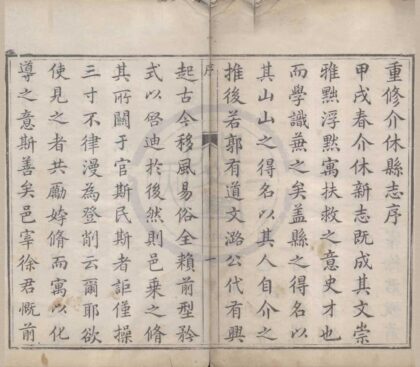 重修介休縣志序
甲戌春介休新志既成其文崇
雅黜浮默寓扶救之意史才也
而學識蕪之矣蓋縣之得名以
其山山之得名以其人自介之
推後若郭有道文潞公代有興
序
一
起古今移風易俗全賴前型矜
式以啓迪於後然則邑乗之脩
其所關于官斯民斯者詎僅操
三寸不律漫為登削云爾耶欲
使見之者共勵姱脩而寓以化
導之意斯善矣邑宰徐君慨前